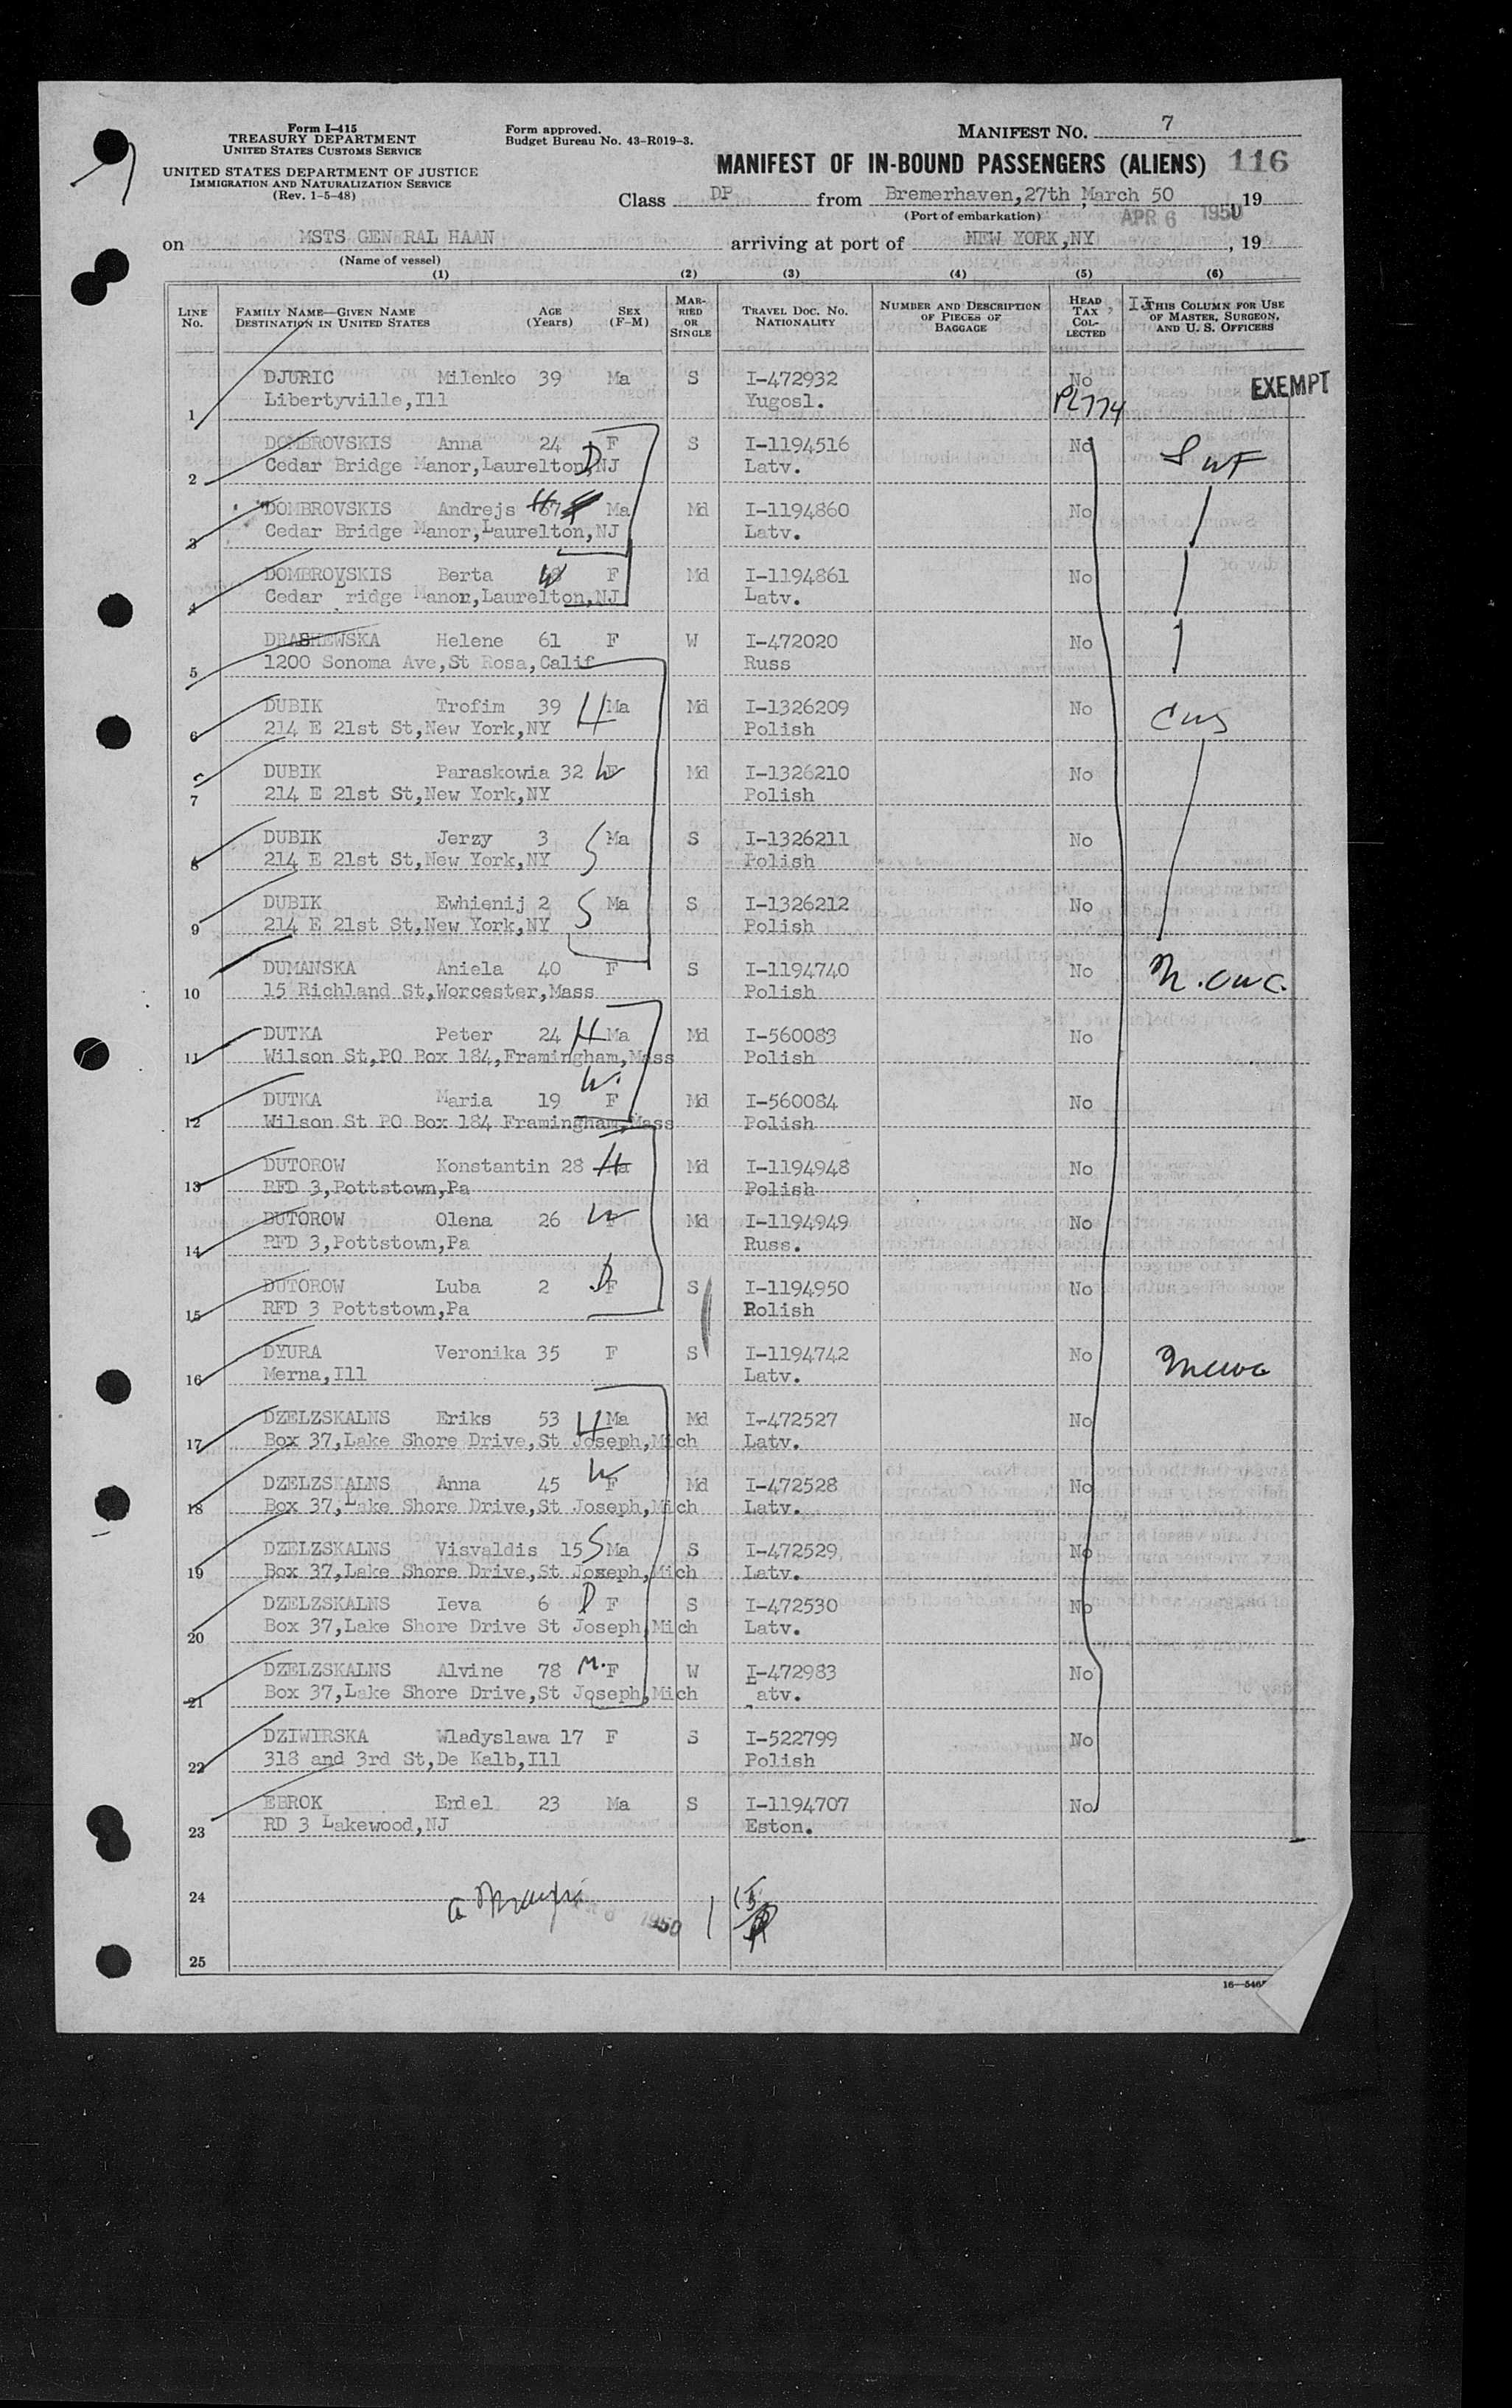 Form I-415
TREASURY DEPARTMENT
UNITED STATES CUSTOMS SERVICE
UNITED STATES DEPARTMENT OF JUSTICE
IMMIGRATION AND NATURALIZATION SERVICE
(Rev. 1-5-48)
Form approved.
Budget Bureau No. 43-R019-3.
MANIFEST NO. 7
MANIFEST OF IN-BOUND PASSENGERS (ALIENS) 116
Class DP from Bremerhaven, 27th March 50 , 19
(Port of embarkation) APR 6 1950
on MSTS GENERAL HAAN arriving at port of NEW YORK, NY , 19
(Name of vessel)
(1) (2) (3) (4) (5) (6)
LINE No. FAMILY NAME—GIVEN NAME DESTINATION IN UNITED STATES AGE (Years) SEX (F-M) MARRIED OR SINGLE TRAVEL DOC. NO. NATIONALITY NUMBER AND DESCRIPTION OF PIECES OF BAGGAGE HEAD TAX COLLECTED THIS COLUMN FOR USE OF MASTER, SURGEON, AND U. S. OFFICERS
DJURIC Milenko 39 Ma S I-472932 No EXEMPT
1 Libertyville, Ill Yugosl. PL774
DOMBROVSKIS Anna 24 F S I-1194516 No
2 Cedar Bridge Manor, Laurelton, NJ D Latv.
DOMBROVSKIS Andrejs 67 H Ma Md I-1194860 No
3 Cedar Bridge Manor, Laurelton, NJ Latv.
DOMBROVSKIS Berta W F Md I-1194861 No
4 Cedar ridge Manor, Laurelton, NJ Latv.
DRASHEWSKA Helene 61 F W I-472020 No
5 1200 Sonoma Ave, St Rosa, Calif Russ
DUBIK Trofim 39 H Ma Md I-1326209 No
6 214 E 21st St, New York, NY Polish
DUBIK Paraskowia 32 W F Md I-1326210 No
7 214 E 21st St, New York, NY Polish
DUBIK Jerzy 3 S Ma S I-1326211 No
8 214 E 21st St, New York, NY Polish
DUBIK Ewhienij 2 S Ma S I-1326212 No
9 214 E 21st St, New York, NY Polish
DUMANSKA Aniela 40 F S I-1194740 No
10 15 Richland St, Worcester, Mass Polish
DUTKA Peter 24 H Ma Md I-560083 No
11 Wilson St, PO Box 184, Framingham, Mass Polish
DUTKA Maria 19 W. F Md I-560084 No
12 Wilson St PO Box 184 Framingham, Mass Polish
DUTOROW Konstantin 28 H Ma Md I-1194948 No
13 RFD 3, Pottstown, Pa Polish
DUTOROW Olena 26 W F Md I-1194949 No
14 RFD 3, Pottstown, Pa Russ.
DUTOROW Luba 2 D F S I-1194950 No
15 RFD 3 Pottstown, Pa Polish
DYURA Veronika 35 F S I-1194742 No
16 Merna, Ill Latv.
DZELZSKALNS Eriks 53 H Ma Md I-472527 No
17 Box 37, Lake Shore Drive, St Joseph, Mich Latv.
DZELZSKALNS Anna 45 W F Md I-472528 No
18 Box 37, Lake Shore Drive, St Joseph, Mich Latv.
DZELZSKALNS Visvaldis 15 S Ma S I-472529 No
19 Box 37, Lake Shore Drive, St Joseph, Mich Latv.
DZELZSKALNS Ieva 6 D F S I-472530 No
20 Box 37, Lake Shore Drive St Joseph, Mich Latv.
DZELZSKALNS Alvine 78 M. F W I-472983 No
21 Box 37, Lake Shore Drive, St Joseph, Mich Latv.
DZIWIRSKA Wladyslawa 17 F S I-522799 No
22 318 and 3rd St, De Kalb, Ill Polish
EBROK Erdel 23 Ma S I-1194707 No
23 RD 3 Lakewood, NJ Eston.
24
1950
25